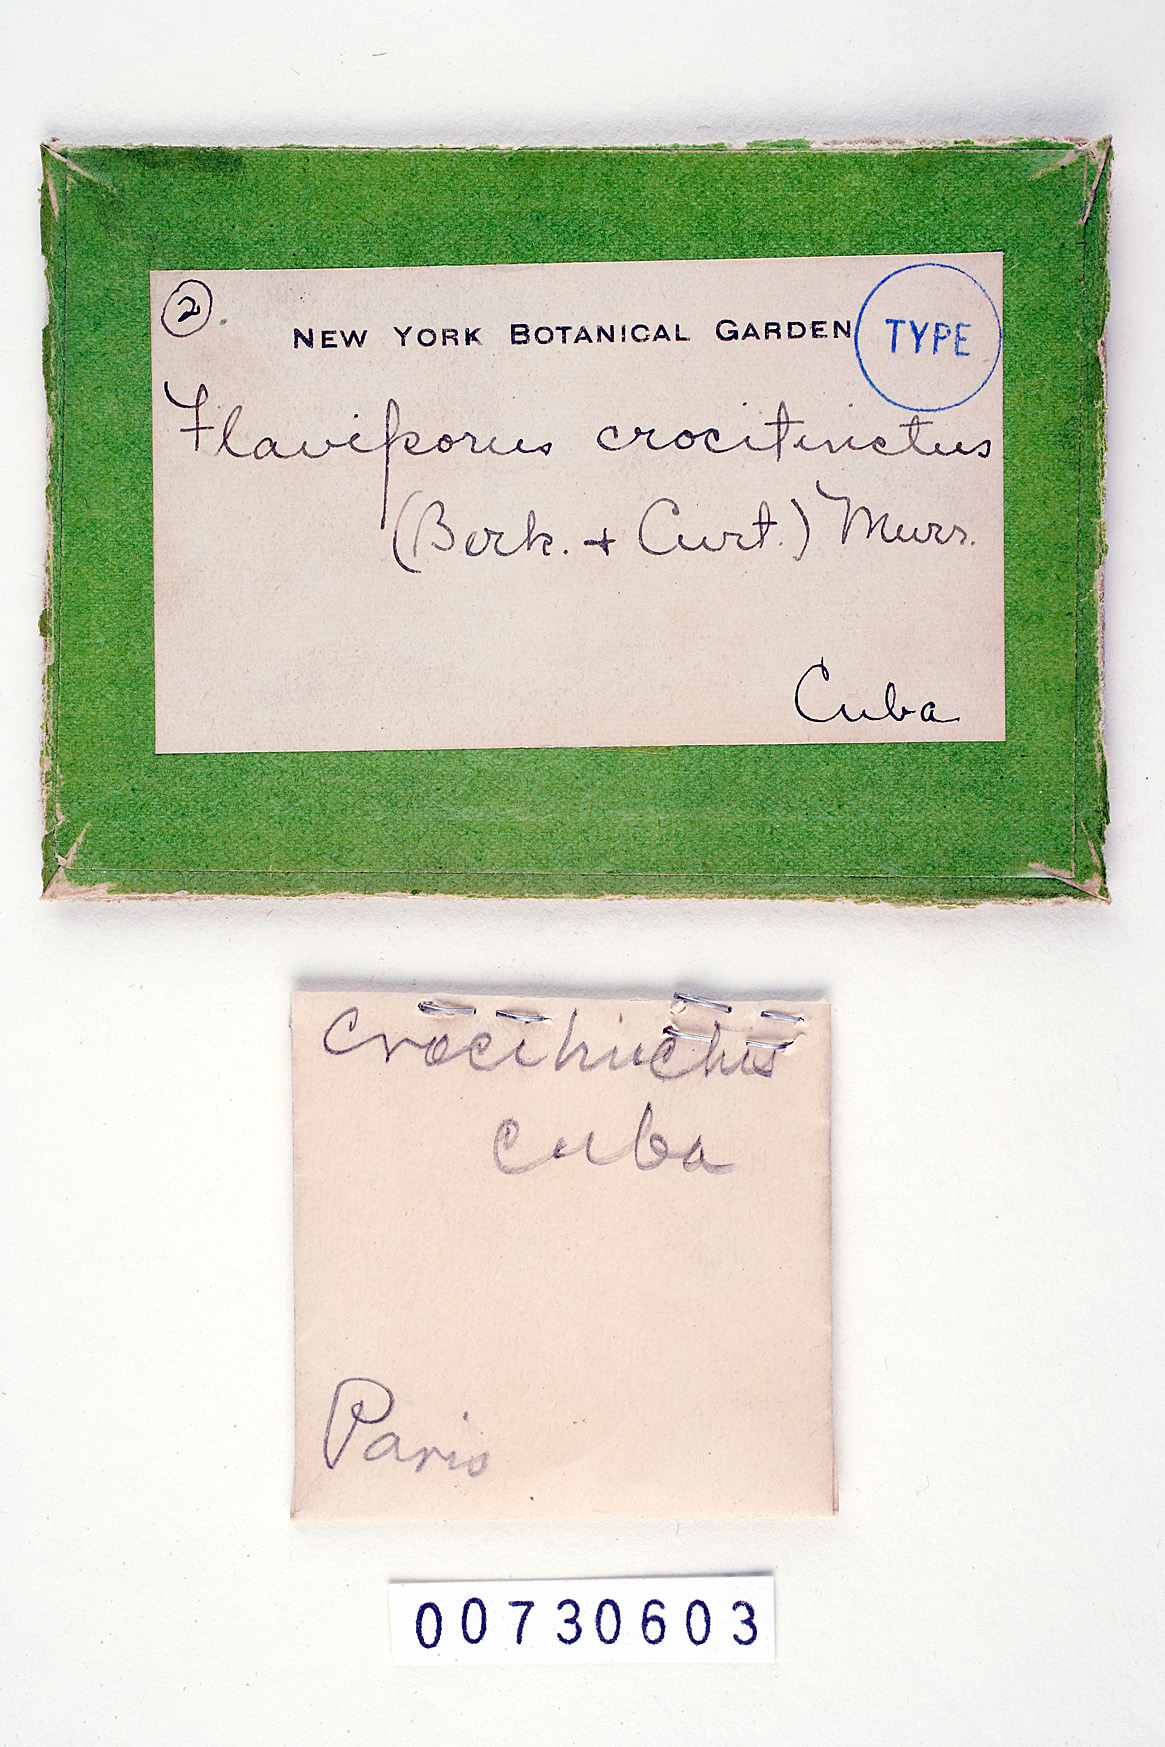 2
NEW YORK BOTANICAL GARDEN
TYPE
Flaviporus crocitinctus
(Berk. + Curt.) Murr.
Cuba
crocitinctus
Cuba
Paris
00730603